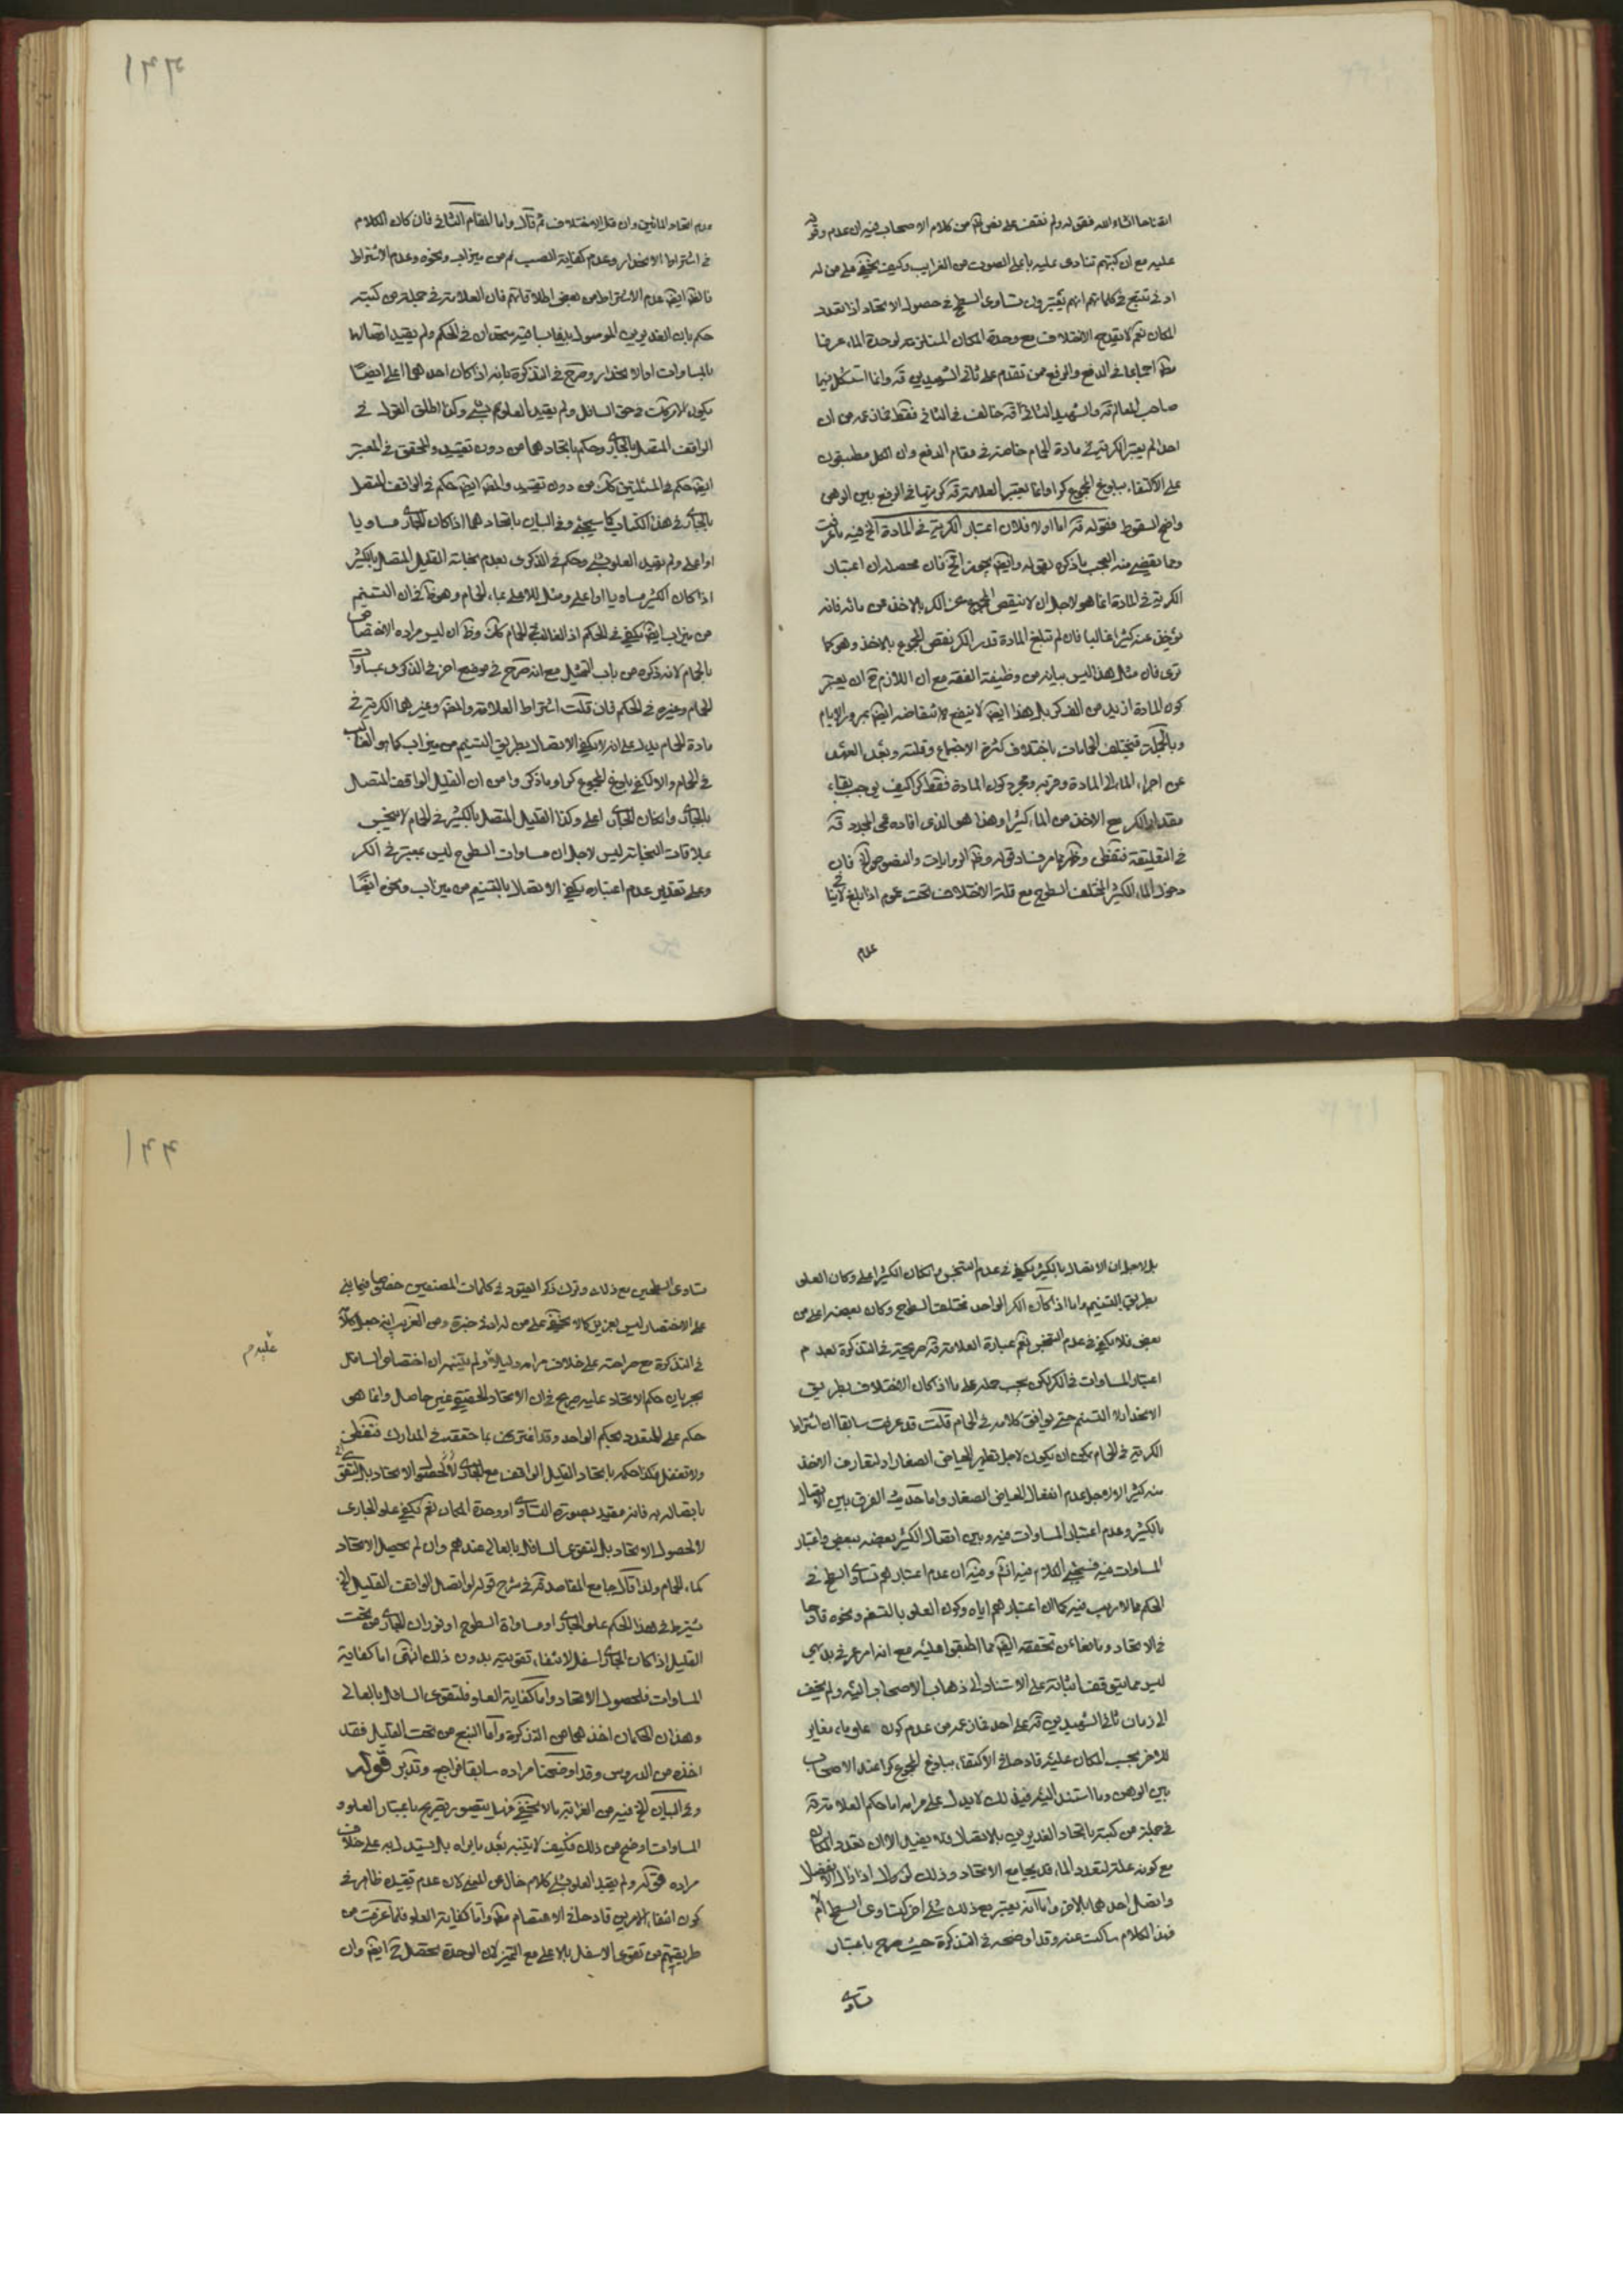 اتقناها انشاء الله فقوله ولم نقف على نص لهم من كلام الاصحاب فيه ان عدم وقوفه
عليه مع ان كتبهم تنادى عليه باعلى الصوت من الغرايب وكيف يخفى على من له
ادنى تتبع فى كلماتهم انهم يعتبرون تساوى السطح فى حصول الاتحاد اذا تعدد
المكان نعم لا يقدح الاختلاف مع وحدة المكان المستلزمة لوحدة الماء عرفا
اجماعا فى الدفع والرفع ممن تقدم على ثانى الشهيدين قه وانما استشكل فيهما
صاحب المعالم قه والشهيد الثانى قه خالف فى الثانى فقط فما زعمه من ان
احدا لم يعتبر الكرية فى مادة الحمام خاصة فى مقام الدفع وان الكل مطبقون
على الاكتفاء ببلوغ المجموع كرا وانما يعتبر العلامة قه كريتها فى الرفع بين الوهن
واضح السقوط فقوله قه اما اولا فلان اعتبار الكرية فى المادة الخ فيه ما عرفت
ومما يقضى منه العجب ما ذكره بقوله وايضا يجوز الخ فان محصله ان اعتبار
الكرية فى المادة انما هو لاجل ان لا ينقص المجموع عن الكر بالاخذ من مائه فانه
يؤخذ عنه كثيرا غالبا فان لم تبلغ المادة قدر الكر نقص المجموع بالاخذ وهو كما
ترى فان مثل هذا ليس بيانه من وظيفة الفقه مع ان اللازم ح ان يعتبر
كون المادة ازيد من الف كر بل هذا ايضا لا ينفع لانتقاضه ايضا بمرور الايام
وبالجملة فيختلف الحمامات باختلاف كثرة الاجتماع وقلته وبعد العهد
عن اجراء الماء الى المادة وقربه ومجرد كون المادة فقط كرا كيف يوجب بقاء
مقدار الكر مع الاخذ من الماء كثيرا وهذا هو الذى افاده المجدد قه
فى التعليقة فتفطن وظهر مما مر فساد قوله وظهر الروايات والنصوص الخ فان
دخول الماء الكثير المختلف السطوح مع قلة الاختلاف تحت عموم اذا بلغ لا ينافى
عدم
١٢٢
عدم اتحاد المائين وان قل الاختلاف ثم قال واما المقام الثانى فان كان الكلام
فى اشتراط الانحدار وعدم كفاية الصب ثم من ميزاب ونحوه وعدم الاشتراط
فالظ ايضا عدم الاشتراط من بعض اطلاقاتهم فان العلامة فى جملة من كتبه
حكم بان الغديرين الموصول بينهما بساقية متحدان فى الحكم ولم يقيد اتصالها
بالمساوات اولا بانحدار وصرح فى التذكرة بانه اذا كان احدهما اعلى ايضا
يكون الاتحاد فى حق السافل ولم يقيد العلو بشئ وكذا اطلق القول فى
الواقف المتصل بالجارى وحكم باتحادهما من دون تقييد والمحقق فى المعتبر
ايضا حكم فى المسئلتين كك من دون تقييد والمص ايضا حكم فى الواقف المتصل
بالجارى فى هذا الكتاب كما سيجئ وفى البيان باتحادهما اذا كان الجارى مساويا
او اعلى ولم يقيد العلو بشئ وحكم فى الذكرى بعدم نجاسة القليل المتصل بالكثير
اذا كان الكثير مساويا او اعلى ومثل للاعلى بماء الحمام وهو ظ فى ان التسنيم
من ميزاب ايضا يكفى فى الحكم اذ الغالب فى الحمام كك وظ ان ليس مراده الاختصاص
بالحمام لانه ذكره من باب التمثيل مع انه صرح فى موضع اخر فى الذكرى بمساوات
الحمام وغيره فى الحكم فان قلت اشتراط العلامة والمص وغيرهما الكرية فى
مادة الحمام يدل على انه لا يكفى الاتصال بطريق التسنيم من ميزاب كما هو الغالب
فى الحمام والا لكفى بلوغ المجموع كرا وما ذكروا من ان القليل الواقف المتصل
بالجارى وان كان الجارى اعلى وكذا القليل المتصل بالكثير فى الحمام لا ينجس
بملاقات النجاسة ليس لاجل ان مساوات السطوح ليس بمعتبر فى الكر
وعلى تقدير عدم اعتباره يكفى الاتصال بالتسنيم من ميزاب ونحوه ايضا
بل لاجل ان الاتصال بالكثير يكفى فى عدم التنجس وان كان الكثير اعلى وكان العلو
بطريق التسنيم واما اذا كان الكر الواحد مختلف السطوح وكان بعضه اعلى من
بعض فلا يكفى فى عدم التنجس نعم عبارة العلامة قه صريحة فى التذكرة بعدم
اعتبار المساوات فى الكر لكن يجب حمله على ما اذا كان الاختلاف بطريق
الانحدار لا التسنيم حتى يوافق كلامه فى الحمام قلت قد عرفت سابقا ان اشتراط
الكرية فى الحمام يمكن ان يكون لاجل تطهير الحياض الصغار او لتعارف الاخذ
منه كثيرا لا لاجل عدم انفعال الحياض الصغار واما حديث الفرق بين الاتصال
بالكثير وعدم اعتبار المساوات فيه وبين اتصال الكثير بعضه ببعض واعتبار
المساوات فيه فسيجئ الكلام فيه انتهى وفيه ان عدم اعتبارهم تساوى السطح فى
الحكم مما لا ريب فيه كما ان اعتبارهم اياه وكون العلو بالتسنيم ونحوه قادحا
فى الاتحاد ومانعا عن تحققه ايضا مما اطبقوا عليه مع انه امر عرفى بديهى
ليس مما يتوقف اثباته على الاستناد الى ذهاب الاصحاب اليه ولم يخف
الى زمان ثانى الشهيدين قه على احد فما زعمه من عدم كون علو ماء مغاير
للاخر بحسب المكان عليه قادحا فى الاكتفاء ببلوغ المجموع كرا عند الاصحاب
بين الوهن وما استند اليه فى ذلك لا يدل على مرامه اما حكم العلامة قه
فى جملة من كتبه باتحاد الغديرين بالاتصال فلا يفيد الا ان تعدد المكان
مع كونه علة لتعدد الماء قد يجامع الاتحاد وذلك اذا زال الانفصال
واتصل احدهما بالاخر واما انه يعتبر مع ذلك شئ اخر كتساوى السطح ام لا
فهذا الكلام ساكت عنه وقد اوضحه فى التذكرة حيث صرح باعتبار
تساوى
١٢٢
تساوى السطحين مع ذلك وترك ذكر القيود فى كلمات المصنفين خصوصا فيما بنى
على الاختصار ليس بعزيز كما لا يخفى على من له ادنى خبرة ومن الغريب انه جعل كلامه
فى التذكرة مع صراحته على خلاف مرامه دليلا ولم يتنبه ان اختصاص السافل
عليه م
بجريان حكم الاتحاد عليه صريح فى ان الاتحاد الحقيقى غير حاصل وانما هو
حكم على المتعدد بحكم الواحد وقد اعترف بما حققه فى المدارك فتفطن
ولا تغفل وكذا حكمه باتحاد القليل الواقف مع الجارى لا لحصول الاتحاد بل لتقوى
باتصاله به فانه مقيد بصورة التساوى او وحدة المكان نعم يكفى علو الجارى
لا لحصول الاتحاد بل لتقوى السافل بالعالى عندهم وان لم يحصل الاتحاد
كماء الحمام ولذا قال جامع المقاصد قه فى شرح قوله لو اتصل الواقف القليل الخ
يشترط فى هذا الحكم علو الجارى او مساواة السطوح او فوران الجارى من تحت
القليل اذا كان الجارى اسفل لانتفاء تقويته بدون ذلك انتهى اما كفاية
المساوات فلحصول الاتحاد واما كفاية العلو فلتقوى السافل بالعالى
وهذان الحكمان اخذهما من التذكرة واما النبع من تحت القليل فقد
اخذه من الدروس وقد اوضحنا مراده سابقا فراجع وتدبر قوله
وفى البيان الخ فيه من الغرابة ما لا يخفى فهل يتصور تصريح باعتبار العلو و
المساوات اوضح من ذلك فكيف لا يتنبه بعد ما يراه بل يستدل به على خلاف
مراده فقوله ولم يقيد العلو بشئ كلام خال عن المعنى لان عدم تقييده ظاهر فى
كون انتفاء الامرين قادحا فى الاعتصام مطلقا واما كفاية العلو فلما عرفت من
طريقتهم من تقوى الاسفل بالاعلى مع التميز لان الوحدة يحصل ح ايضا وان